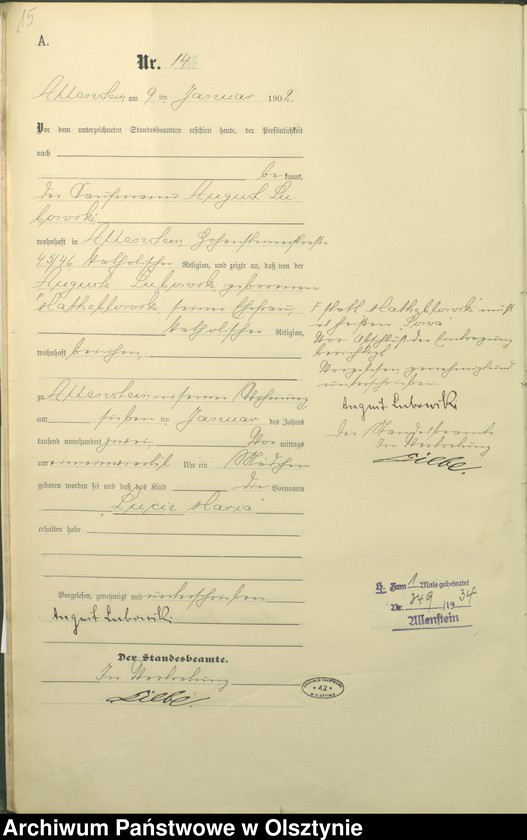 15
A.
Nr. 14
Allenstein am 9 ten Januar 1902.
Vor dem unterzeichneten Standesbeamten erschien heute, der Persönlichkeit
nach
be kannt,
der Kaufmann August Lu-
bowski,
wohnhaft in Allenstein, Hohensteinerstraße
45/46 katholischer Religion, und zeigte an, daß von der
Auguste Lubowski geborenen
seiner Ehefrau,
katholischer Religion,
wohnhaft bei ihm,
zu Allenstein in seiner Wohnung
am sieben ten Januar des Jahres
tausend neunhundert zwei, Vor mittags
um Uhr ein Mädchen
geboren worden sei und daß das Kind die Vornamen
Lucie Maria
erhalten habe
Vorgelesen, genehmigt und unterschrieben
August Lubowski
Der Standesbeamte.
In Vertretung
statt muß
es heißen
Vor Abschluß der Eintragung
berichtigt
Vorgelesen genehmigt und
unterschrieben
August Lubowski
Der Standesbeamte
In Vertretung
H. Zum 1 Male geheiratet
Nr. 349 /19 34
Allenstein
* 42 *
Archiwum Państwowe w Olsztynie